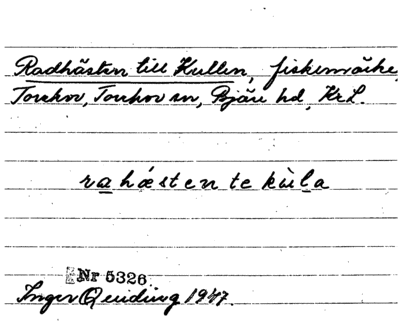 Radhästen till Kullen, fiskemärke,
Torekov, Torekov sn, Bjäre hd, Kr L.
rahǽsten te kùl̲a
Nr 5326
Inger Quiding 1947.